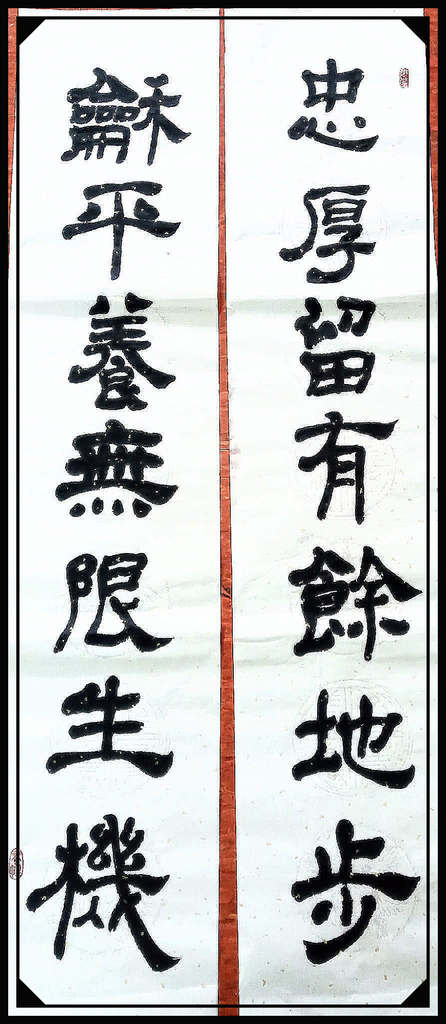 忠厚留有餘地步
龢平養無限生機